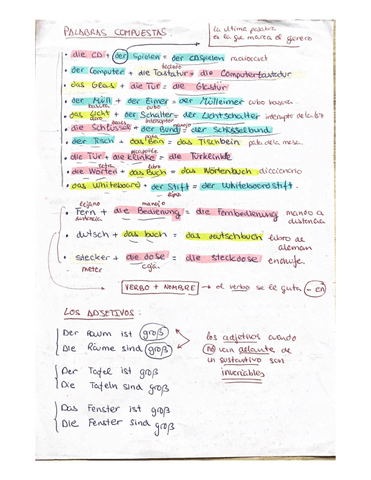 PALABRAS COMPUESTAS:
la última palabra
es la que marca el género
• die CD + der Spielen = der CDspielen radiocaset
teclado
• der Computer + die Tastatur = die Computertastatur
• das Glas + die Tür = die Glastür
basura cubo
• der Müll + der Eimer = der Mülleimer cubo basura
• das Licht + der Schalter = der Lichtschalter
claro llaves interruptor manojo
• die Schlüssel + der Bund = der Schlüsselbund
pata
• der Tisch + das Bein = das Tischbein pata de la mesa
picaporte
• die Tür + die Klinke = die Türklinke
libro
• die Wörter + das Buch = das Wörterbuch diccionario
• das Whiteboard + der Stift = der Whiteboardstift.
lejano manejo
• Fern + die Bedienung = die Fernbedienung mando a
distancia
• dutsch + das buch = das deutschbuch libro de
aleman
• stecker + die dose = die steckdose enchufe.
meter caja
VERBO + NOMBRE → el verbo se le quita -en
LOS ADJETIVOS:
Der Raum ist groß
Die Räume sind groß
los adjetivos cuando
no van delante de
un sustantivo son
invariables
Der Tafel ist groß
Die Tafeln sind groß
Das Fenster ist groß
Die Fenster sind groß